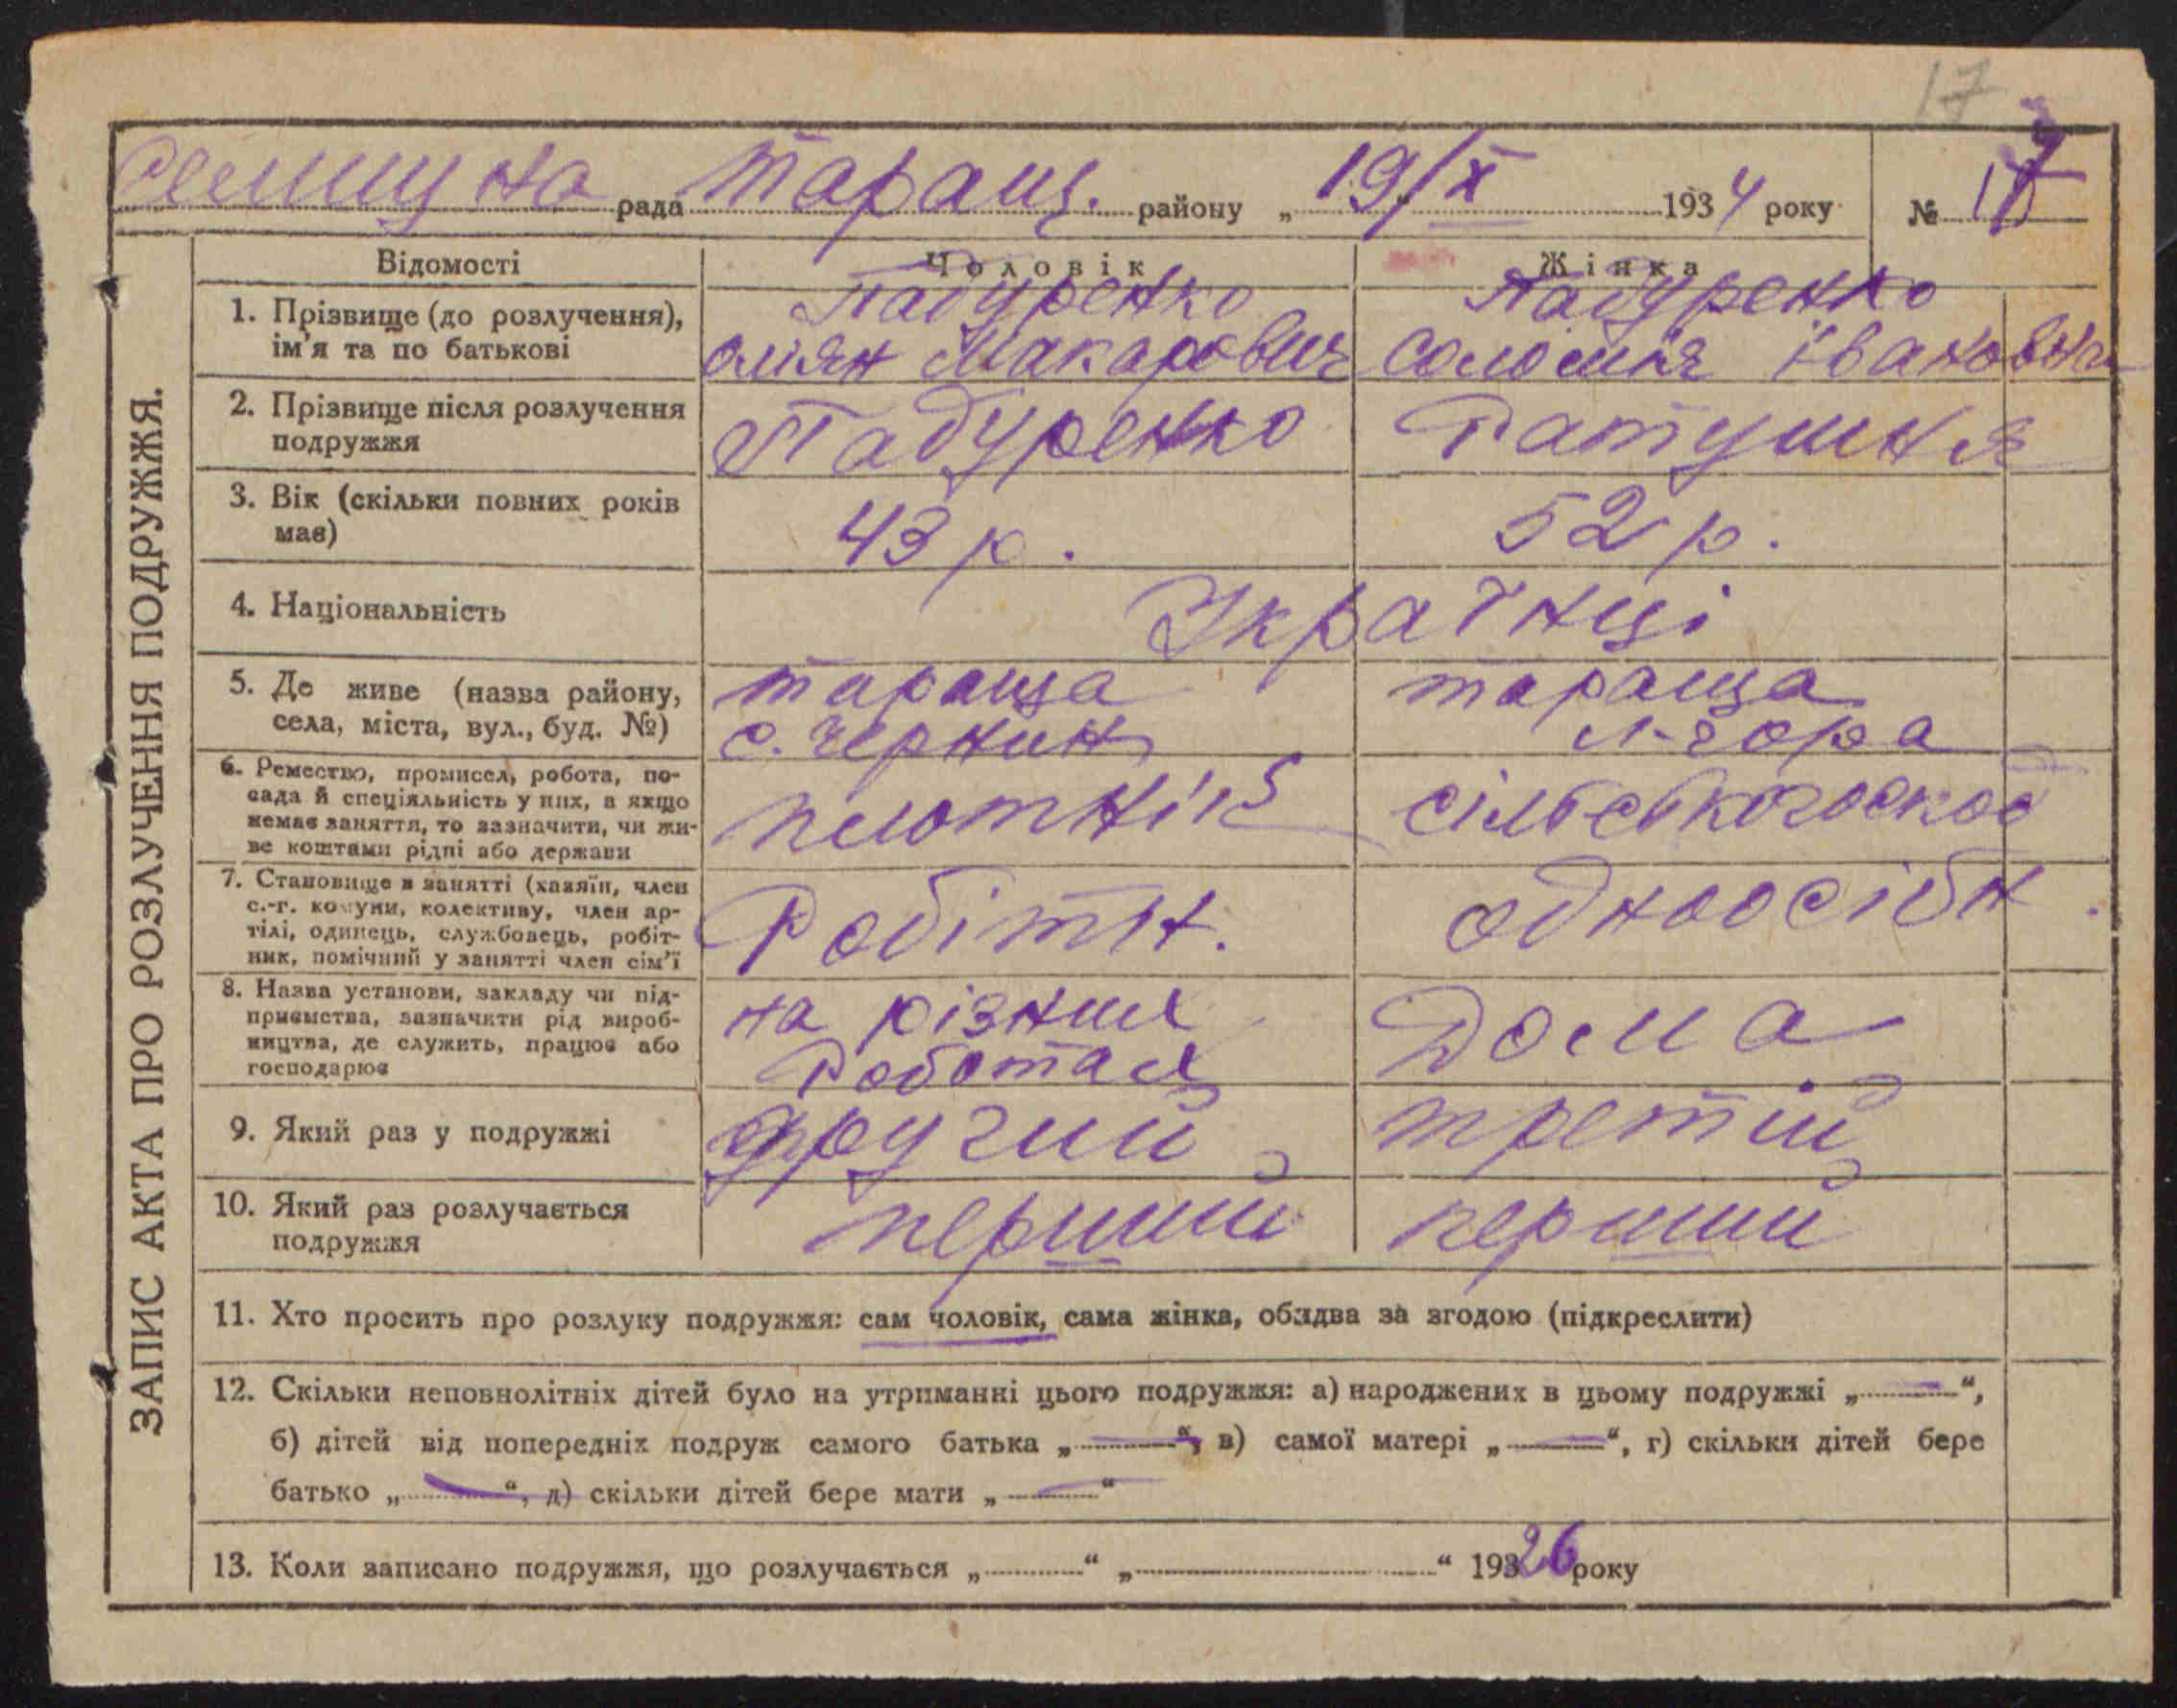 17
Селищна рада Таращ. району „19/X 1934 року № 17
ЗАПИС АКТА ПРО РОЗЛУЧЕННЯ ПОДРУЖЖЯ.
Відомості Чоловік Жінка
1. Прізвище (до розлучення), ім'я та по батькові
Падуренко
омян Макарович
Падуренко
Соломія Івановна
2. Прізвище після розлучення подружжя
Падуренко Ратушня
3. Вік (скільки повних років має)
43 р. 52 р.
4. Національність
Українці
5. Де живе (назва району, села, міста, вул., буд. №)
тараща
с. Чернин
тараща
л-гора
6. Ремество, промисел, робота, посада й спеціяльність у них, а якщо немає заняття, то зазначити, чи живе коштами рідні або держави
плотнік сільськогоспод
7. Становище в занятті (хазяїн, член с.-г. комуни, колективу, член артілі, одинець, службовець, робітник, помічний у занятті член сім'ї
Робітн. одноосібн.
8. Назва установи, закладу чи підприємства, зазначити рід виробництва, де служить, працює або господарює
на різних
Роботах
Дома
9. Який раз у подружжі
другий третій
10. Який раз розлучається подружжя
перший перший
11. Хто просить про розлуку подружжя: сам чоловік, сама жінка, обидва за згодою (підкреслити)
12. Скільки неповнолітніх дітей було на утриманні цього подружжя: а) народжених в цьому подружжі „—“,
б) дітей від попередніх подруж самого батька „—“, в) самої матері „—“, г) скільки дітей бере
батько „—“, д) скільки дітей бере мати „—“
13. Коли записано подружжя, що розлучається „ “ „ “ 19326 року